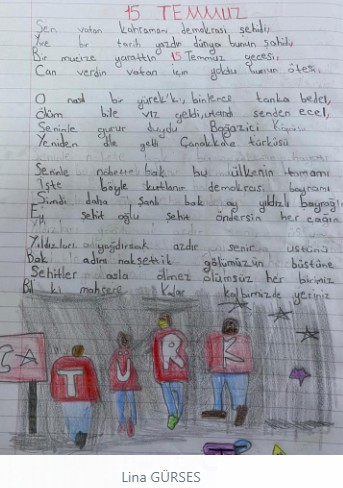 15 TEMMUZ
Sen vatan kahramanı demokrasi şehidi,
Yine bir tarih yazdın dünya bunun şahidi,
Bir mucize yarattın 15 Temmuz gecesi,
Can verdin vatan için yoktu bunun ötesi,
O nasıl bir yürek'ki, binlerce tanka bedel,
Ölüm bile vız geldi, utandı senden ecel,
Seninle gurur duydu Boğaziçi Köprüsü
Yeniden dile geldi Çanakkale türküsü
Seninle nöbette bak bu ülkenin tamamı
İşte böyle kutlanır demokrasi bayramı
Şimdi daha şanlı bak ay yıldızlı bayrağı
Ey şehit oğlu şehit öndersin her çağın
Yıldızları yağdırsak azdır senin üstüne
Bak adını nakşettik göğsümüzün büstüne
Şehitler asla ölmez ölümsüz her birimiz
Bil ki mahşere kalar kalbimizde yeriniz
Ç T Ü R K
Lina GÜRSES